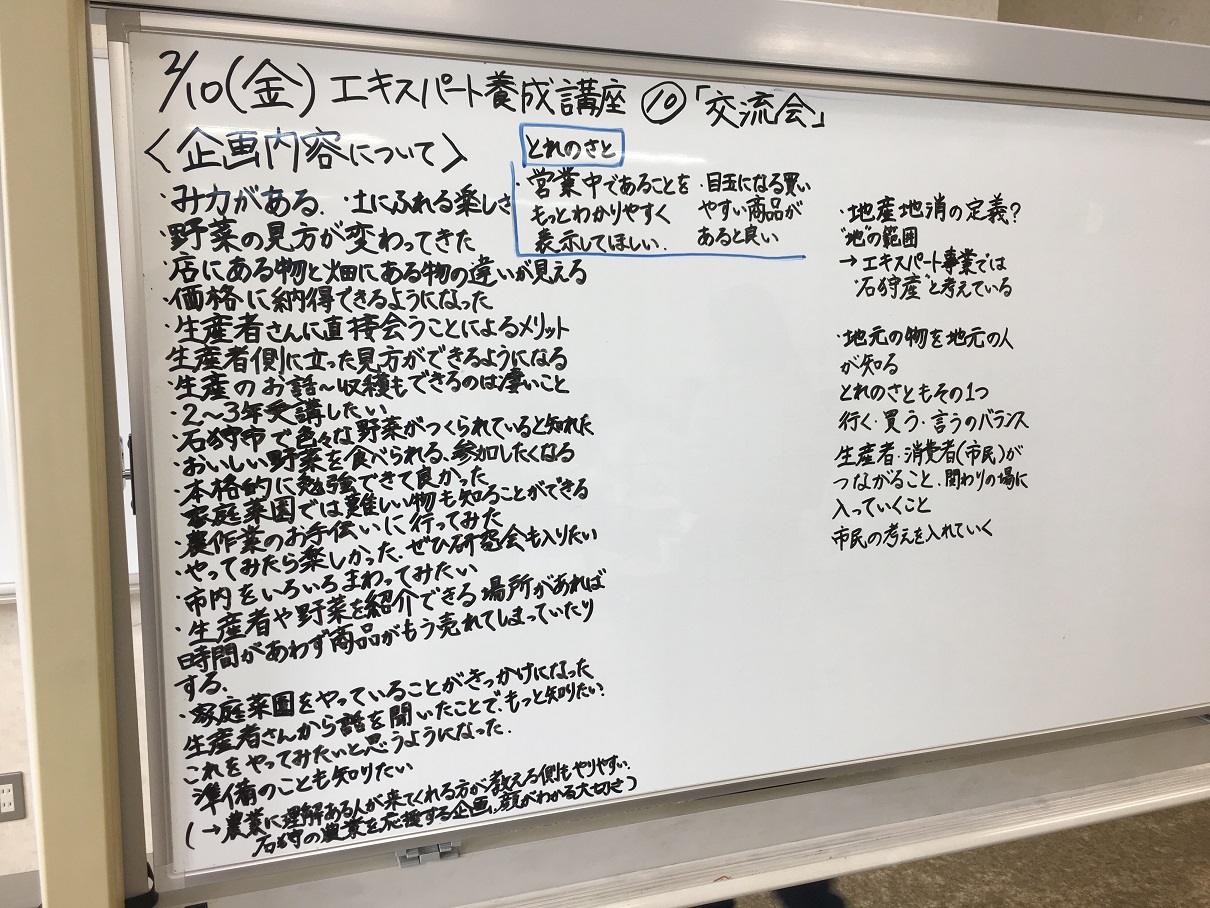 2/10(金) エキスパート養成講座 ⑩「交流会」
〈企画内容について〉
・み力がある. ・土にふれる楽しさ
・野菜の見方が変わってきた
・店にある物と畑にある物の違いが見える
・価格に納得できるようになった
・生産者さんに直接会うことによるメリット
生産者側に立った見方ができるようになる
・生産のお話~収穫もできるのは凄いこと
・2~3年受講したい
・石狩市で色々な野菜がつくられていると知れた
・おいしい野菜を食べられる、参加したくなる
・本格的に勉強できて良かった
家庭菜園では難しい物も知ることができる
・農作業のお手伝いに行ってみた
・やってみたら楽しかった、ぜひ研究会も入りたい
・市内をいろいろまわってみたい
・生産者や野菜を紹介できる場所があれば
時間があわず商品がもう売れてしまっていたり
する.
・家庭菜園をやっていることがきっかけになった
生産者さんから話を聞いたことで、もっと知りたい?
これをやってみたいと思うようになった.
準備のことも知りたい
(→農業に理解ある人が来てくれる方が教える側もやりやすい.
石狩の農業を応援する企画、顔がわかる大切さ)
とれのさと
・営業中であることを
もっとわかりやすく
表示してほしい.
・目玉になる買い
やすい商品が
あると良い
・地産地消の定義?
"地"の範囲
→エキスパート事業では
"石狩産"と考えている
・地元の物を地元の人
が知る
とれのさともその1つ
行く・買う・言うのバランス
生産者・消費者(市民)が
つながること、関わりの場に
入っていくこと
市民の考えを入れていく